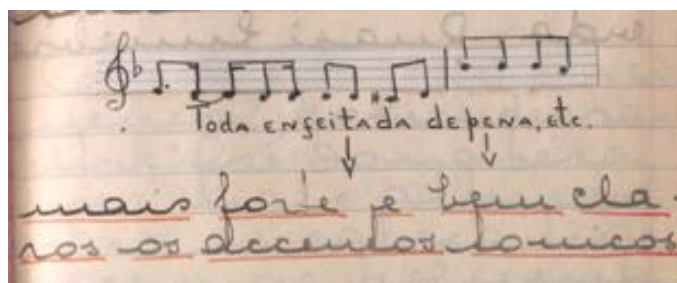 Toda enfeitada de pena, etc.
mais forte e bem cla-
ros os accentos tonicos